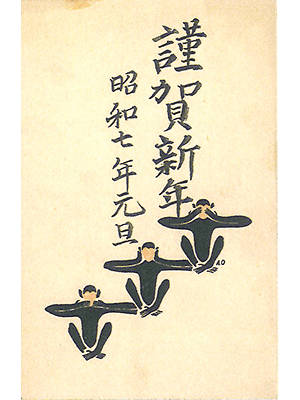 謹賀新年
昭和七年元旦
AO